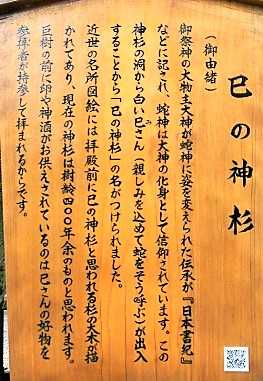 巳の神杉
(御由緒)
御祭神の大物主大神が蛇神に姿を変えられた伝承が『日本書紀』
などに記され、蛇神は大神の化身として信仰されています。この
神杉の洞から白い巳さん(親しみを込めて蛇をそう呼ぶ)が出入
することから「巳の神杉」の名がつけられました。
近世の名所図絵には拝殿前に巳の神杉と思われる杉の大木が描
かれており、現在の神杉は樹齢四〇〇年余のものと思われます。
巨樹の前に卵や神酒がお供えされているのは巳さんの好物を
参拝者が持参して拝まれるからです。